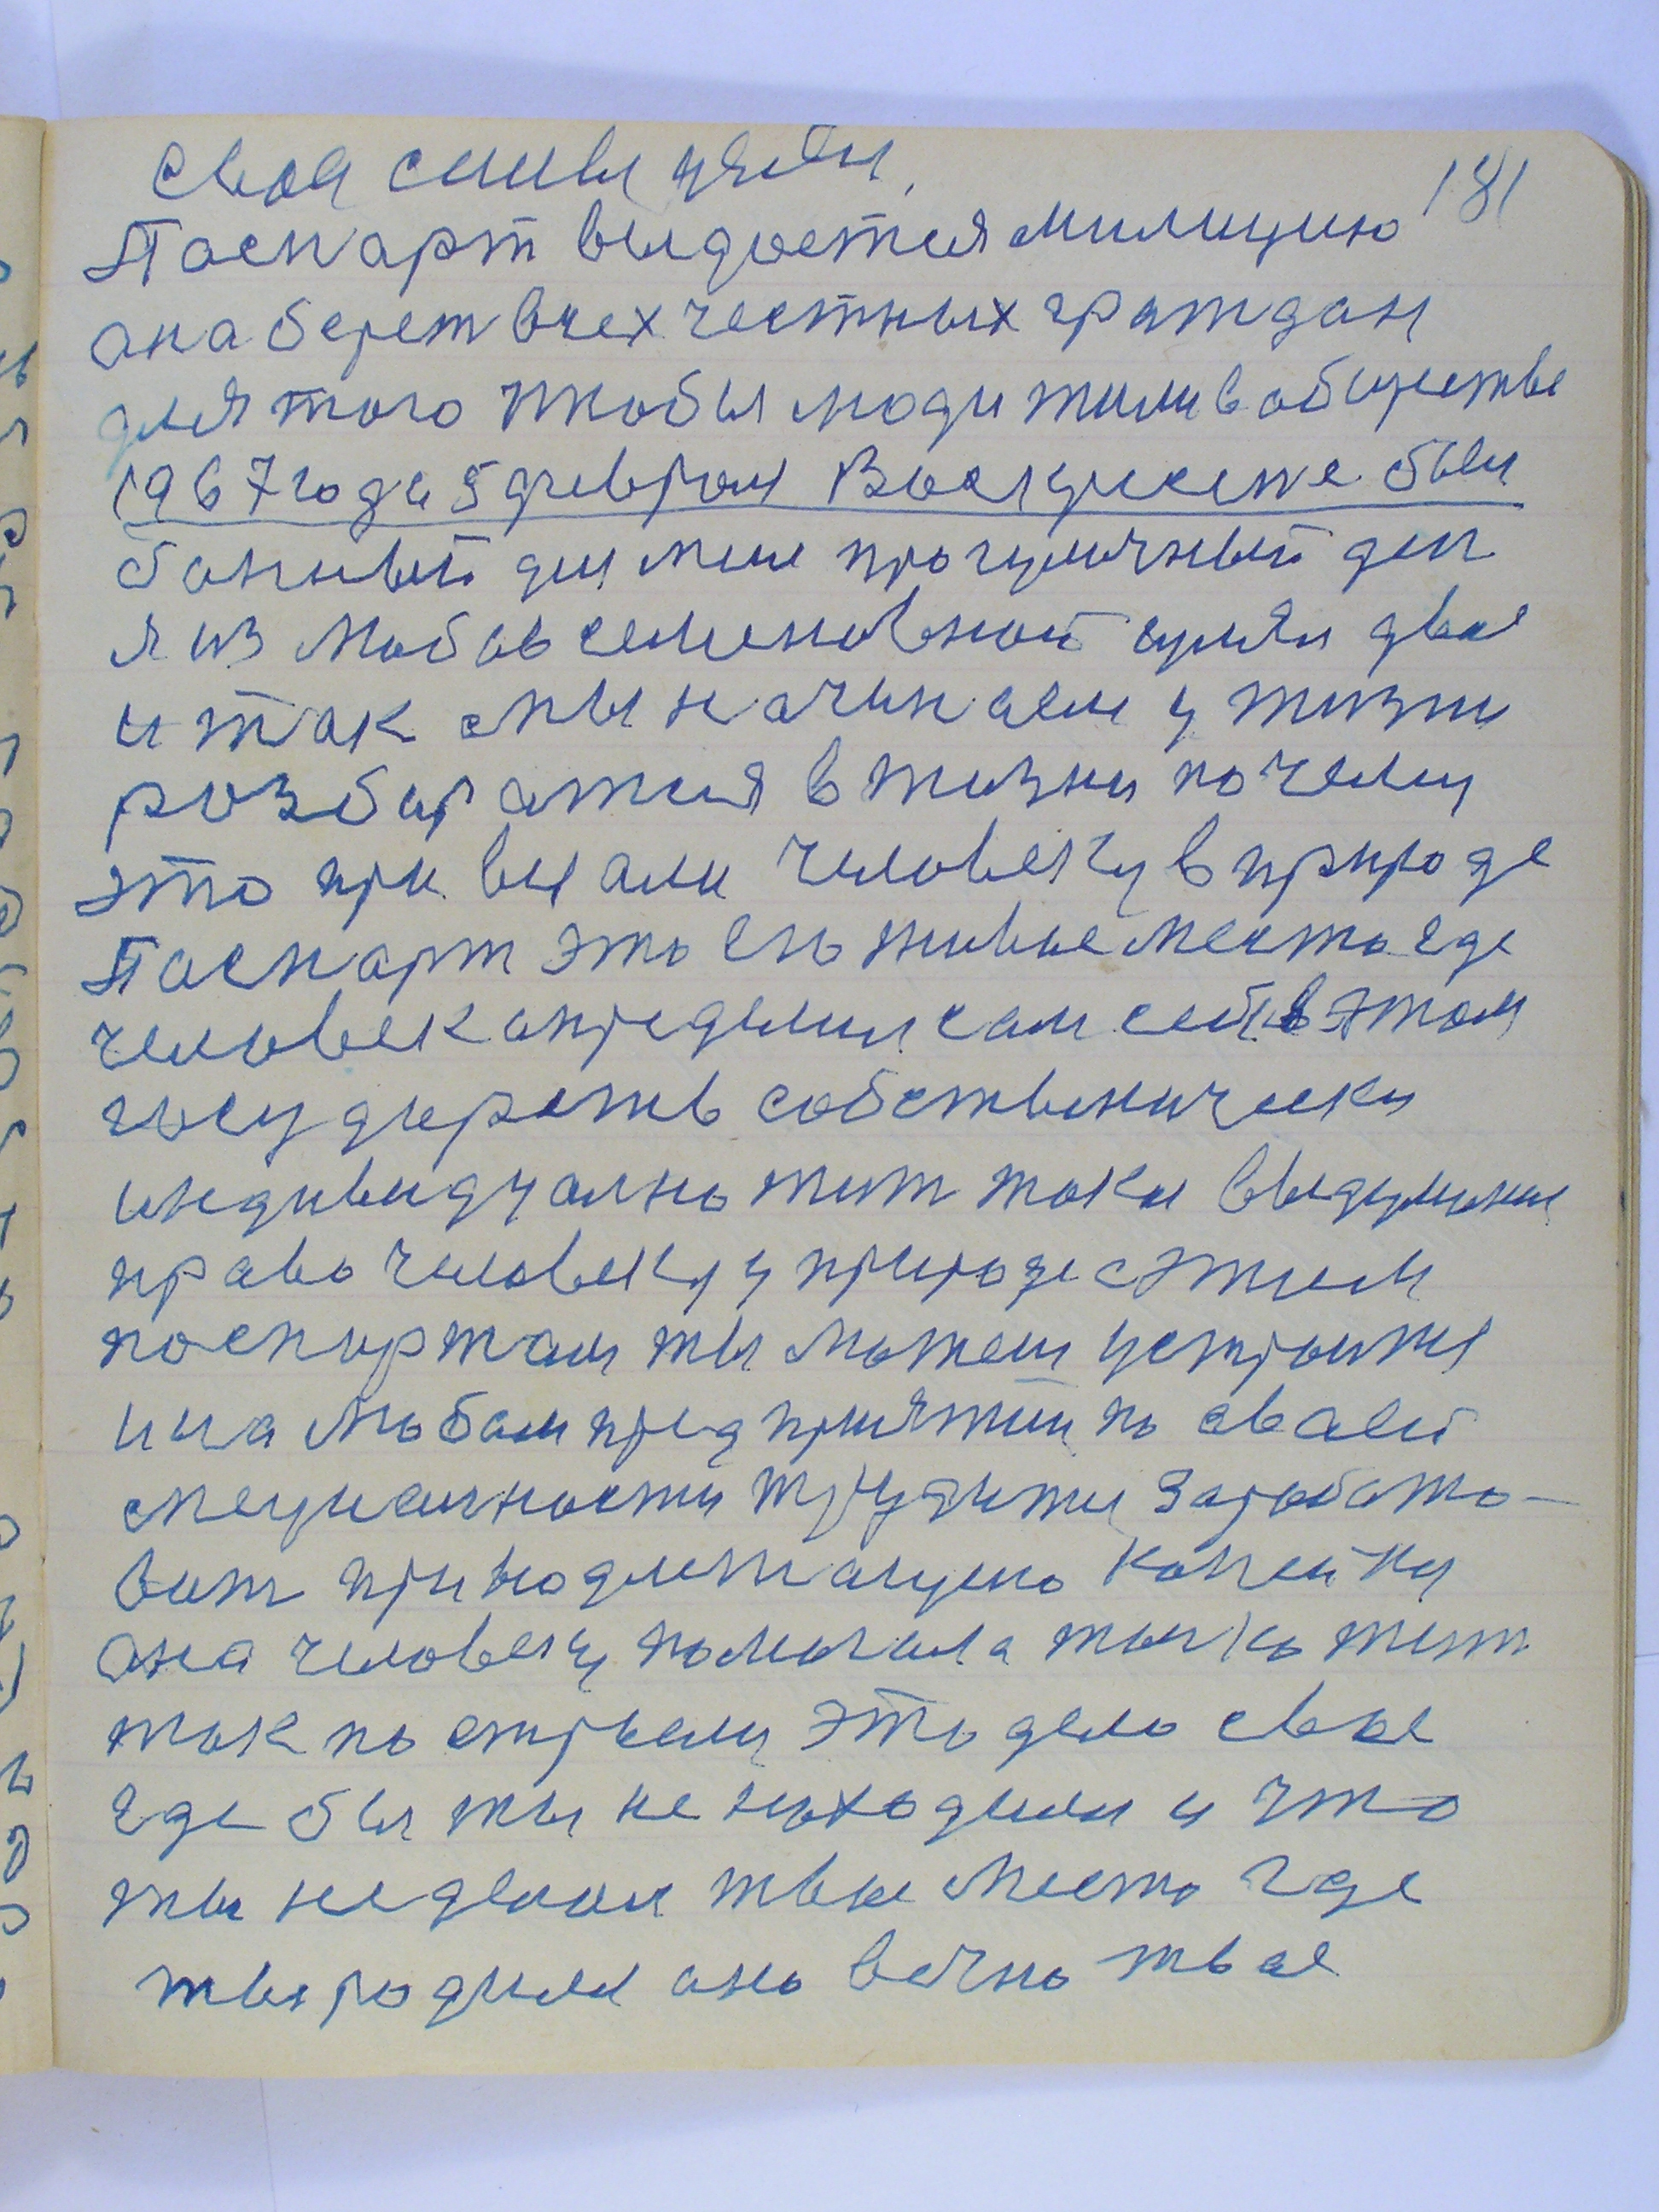 181
Паспарт выдается милицию
она берет всех честных граждан
для того чтобы люди жили в обществе
1967 года 5 февраля Воскресене был
банный ден мне прогулочный ден
я из Любов семеновной гуляли двое
и так мы начинаем у жизни
розбиратися в жизни почему
это при выали человеку в природе
Паспарт это его живое место где
человек определил сам себя в этом
государств собственически
индивидуално жит таки выдумани
право человеку у природе с этим
поспортам ты можеш устроится
и на любом предприятии по своей
специалности трудится заработо-
ват принодлежащую копейку
она человеку помогала толко жит
так по строели это дело свое
где бы ты не находился и что
ты не делал твое место где
ты родился оно вечно твое